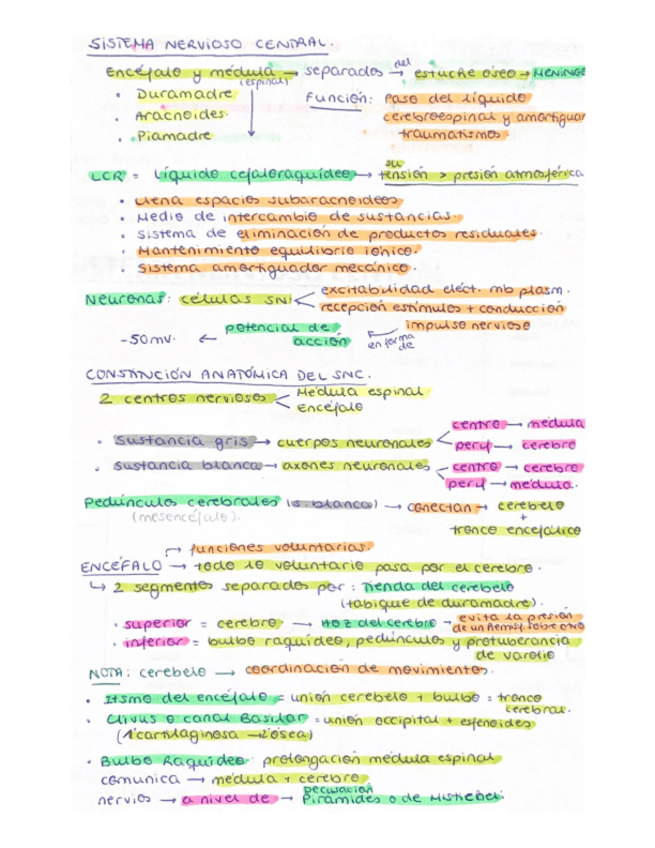 SISTEMA NERVIOSO CENTRAL.
Encéfalo y médula (espinal) → separados → del estuche óseo → MENINGE
• Duramadre
Función: Paso del líquido
• Aracnoides
cerebroespinal y amortiguar
• Piamadre
traumatismos
LCR = Líquido cefaloraquídeo → su tensión > presión atmosférica
• Llena espacios subaracnoideos
• Medio de intercambio de sustancias.
• Sistema de eliminación de productos residuales.
• Mantenimiento equilibrio iónico.
• Sistema amortiguador mecánico.
Neuronas: células SN
excitabilidad eléct. mb plasm.
recepción estímulos + conducción
impulso nervioso
en forma de
potencial de acción
← -50mv.
CONSTINCIÓN ANATÓMICA DEL SNC.
2 centros nerviosos
Médula espinal
Encéfalo
• Sustancia gris → cuerpos neuronales
centro → médula
perif → cerebro
• Sustancia blanca → axones neuronales
centro → cerebro
perif → médula.
Pedúnculos cerebrales (s. blanca) → conectan → cerebelo
(mesencéfalo).
+
tronco encefálico
→ funciones voluntarias.
ENCÉFALO → todo lo voluntario pasa por el cerebro.
↳ 2 segmentos separados por: Tienda del cerebelo
(tabique de duramadre).
• superior = cerebro → Hoz del cerebro → evita la presión
de un hemisf. sobre otro
• inferior = bulbo raquídeo, pedúnculos y protuberancia
de varolio
NOTA: cerebelo → coordinación de movimientos.
• Itsmo del encéfalo = unión cerebelo + bulbo = tronco
cerebral.
• Clivus o canal Basilar = unión occipital + esfenoides
(1º cartilaginosa → 2º ósea)
• Bulbo Raquídeo: prolongación médula espinal
comunica → médula + cerebro
nervios → a nivel de → decusación
Pirámides o de